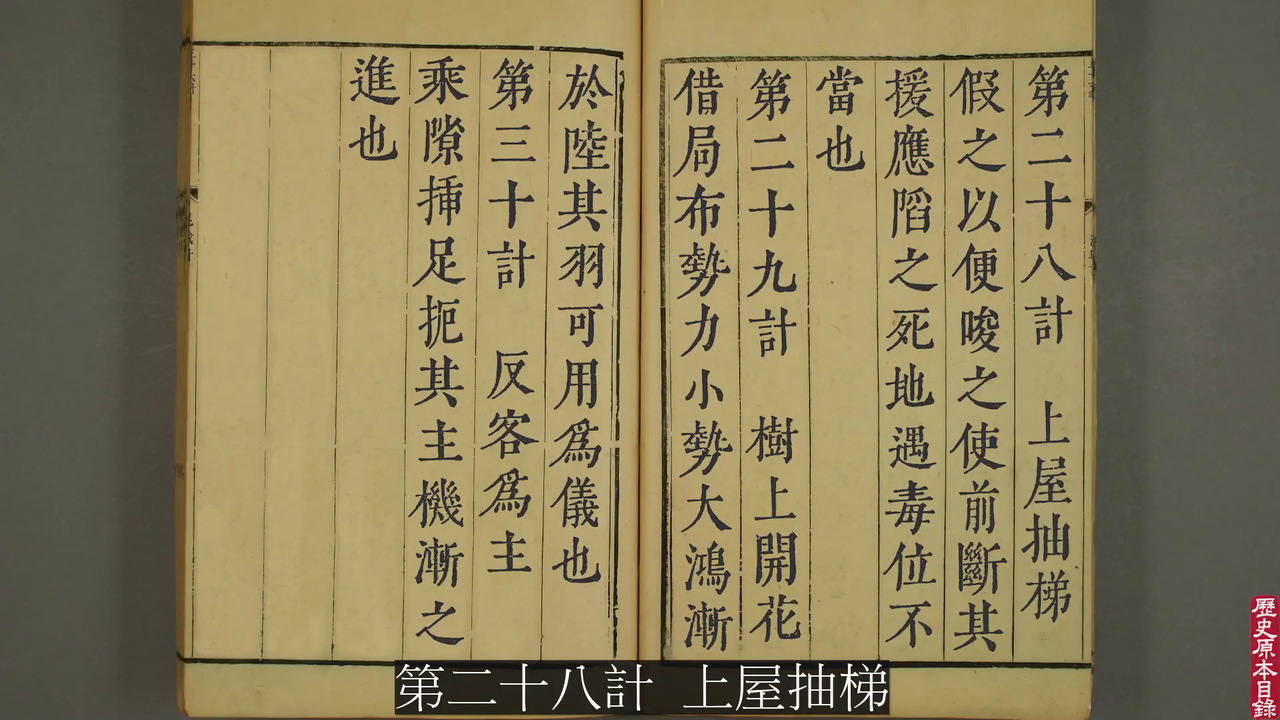 第二十八計　上屋抽梯
假之以便唆之使前斷其
援應陷之死地遇毒位不
當也
第二十九計　樹上開花
借局布勢力小勢大鴻漸
於陸其羽可用爲儀也
第三十計　反客爲主
乘隙揷足扼其主機漸之
進也
第二十八計 上屋抽梯
歷史原本目錄